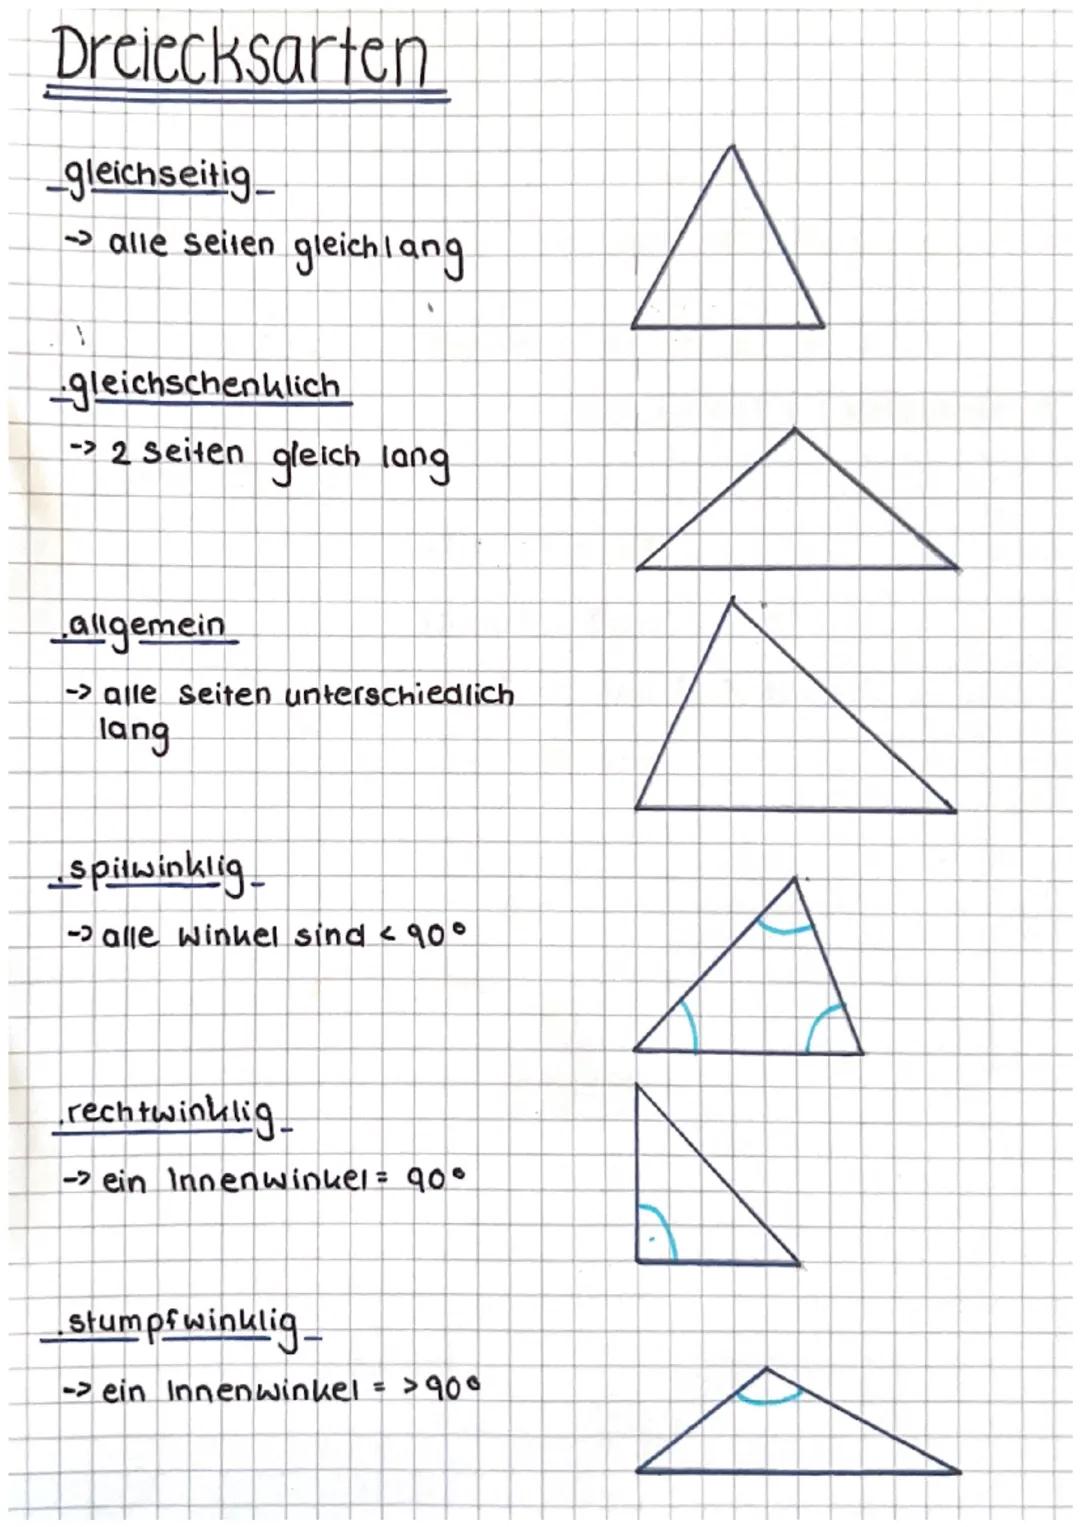 Dreiecksarten
gleichseitig
-> alle seiten gleichlang
gleichschenklich
-> 2 seiten gleich lang
allgemein
-> alle seiten unterschiedlich
lang
spitwinklig
-> alle winkel sind < 90°
rechtwinklig
-> ein Innenwinkel = 90°
stumpfwinklig
-> ein Innenwinkel = >90°